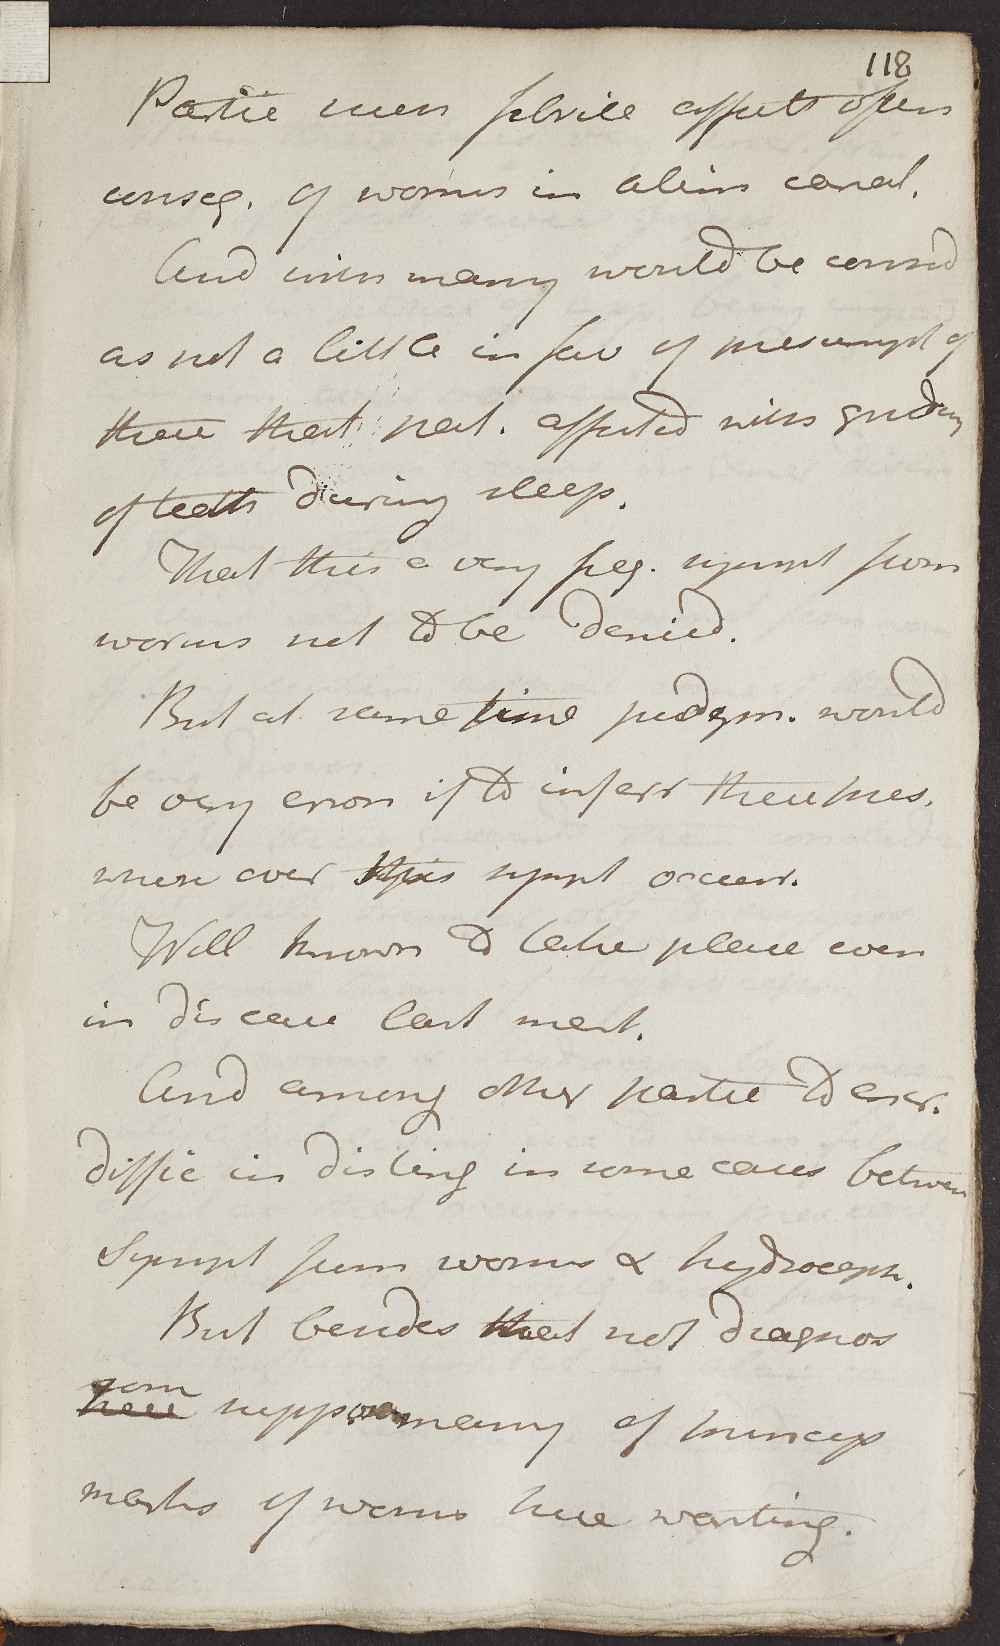 118
Partic when febrile affects often
conseq. of worms in alim canal.
And with many would be consid
as not a little in fav of presumpt of
these that pat. affected with grinding
of teeth during sleep.
That this a very freq. sympt from
worms not to be denied.
But at same time judgm. would
be very erron if to inferr these pres.
where ever this sympt occurr.
Well known to take place even
in disease last ment.
And among other partic to encr.
diffic in disting in some cases between
Sympt from worms & hydroceph.
But besides that not diagnos
from
here suppos many of princip
marks of worms here wanting.